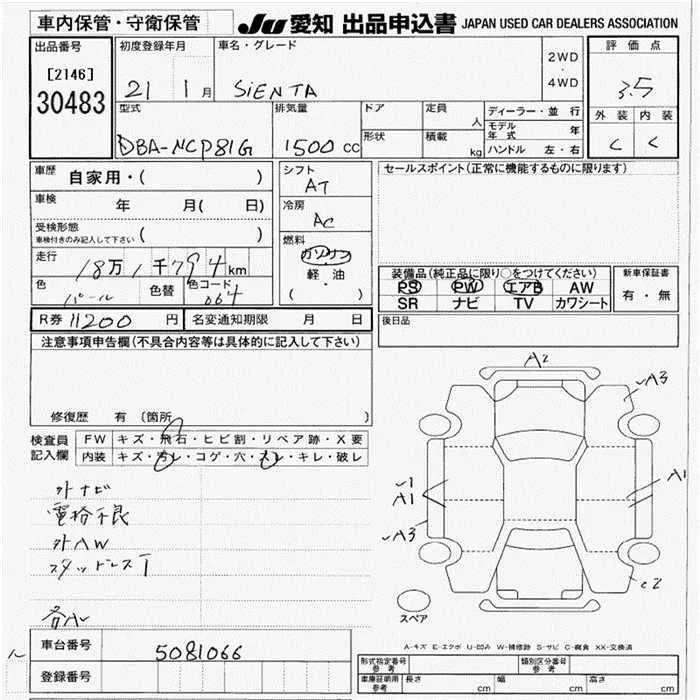 車内保管・守衛保管
JU 愛知 出品申込書 JAPAN USED CAR DEALERS ASSOCIATION
出品番号
[2146]
30483
初度登録年月
21 1月
車名・グレード
SiENTA
2WD
・
4WD
評価点
3.5
外装 内装
C C
型式
DBA-NCP81G
排気量
1500 cc
ドア
形状
定員
人
積載
kg
ディーラー・並行
モデル年式 年
ハンドル 左・右
車歴
自家用・( )
車検
年 月( 日)
受検形態
車検付きのみ記入して下さい ( )
走行
18万1千794km
色
パール
色替
色コード
064
シフト
AT
冷房
AC
燃料
ガソリン
・
軽・油
( )
セールスポイント(正常に機能するものに限ります)
装備品(純正品に限り○をつけてください)
PS PW エアB AW
SR ナビ TV カワシート
新車保証書
有・無
R券 11200 円
名変通知期限 月 日
後日品
注意事項申告欄(不具合内容等は具体的に記入して下さい)
修復歴 有 (箇所 )
検査員記入欄
FW キズ・飛石・ヒビ割・リペア跡・X要
内装 キズ・汚レ・コゲ・穴・スレ・キレ・破レ
外ナビ
電格不良
外AW
スタッドレスT
各AU
A2
A3
1
A1
A3
A1
C2
スペア
A-キズ E-エクボ U-凹み W-補修跡 S-サビ C-腐食 XX-交換済
車台番号
5081066
登録番号
形式指定番号
参考
類別区分番号
参考
車庫証明用
参考
長さ cm 幅 cm 高さ cm